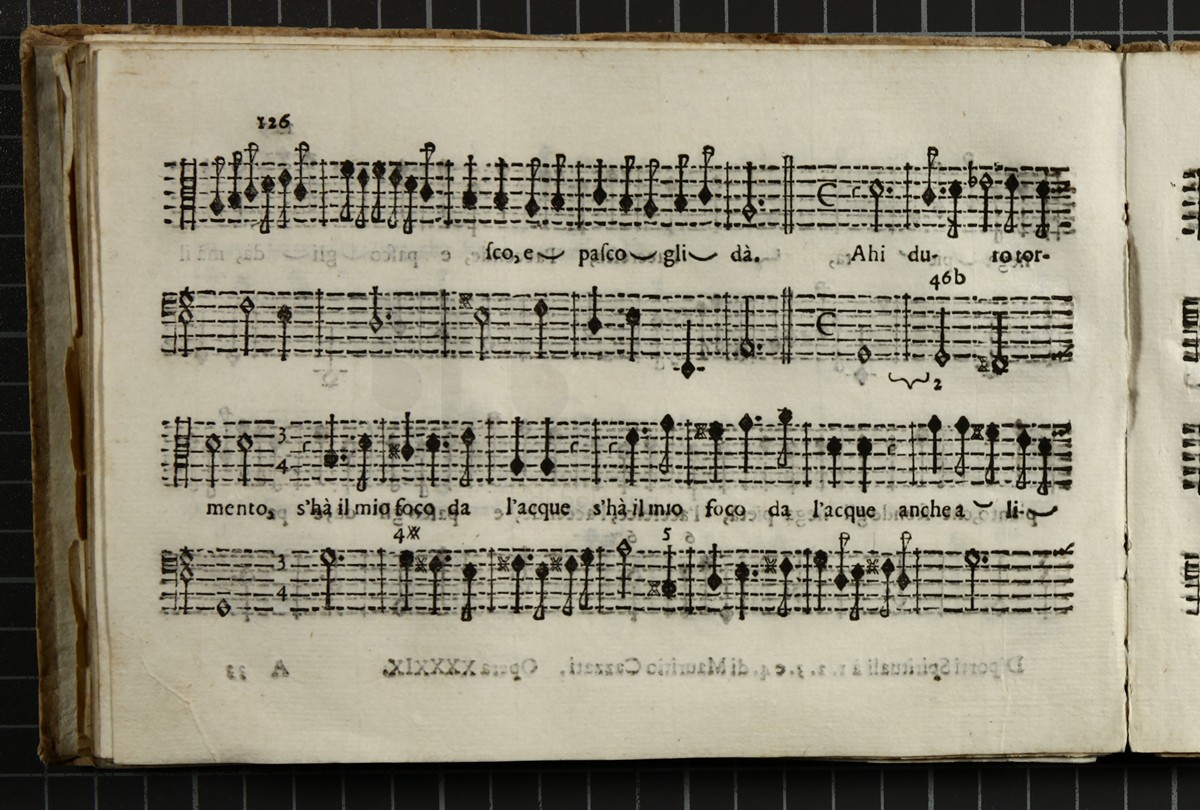 126
ſco, e paſco gli dà. Ahi du- ro tor-
46b
2
3
4
mento, s'hà il mio foco da l'acque s'hà il mio foco da l'acque anche a li-
4 5 6
3
4
Diporti Spirituali à 1. 2. 3. e 4. di Mauritio Cazzati, Opera XXXXIX. A 33